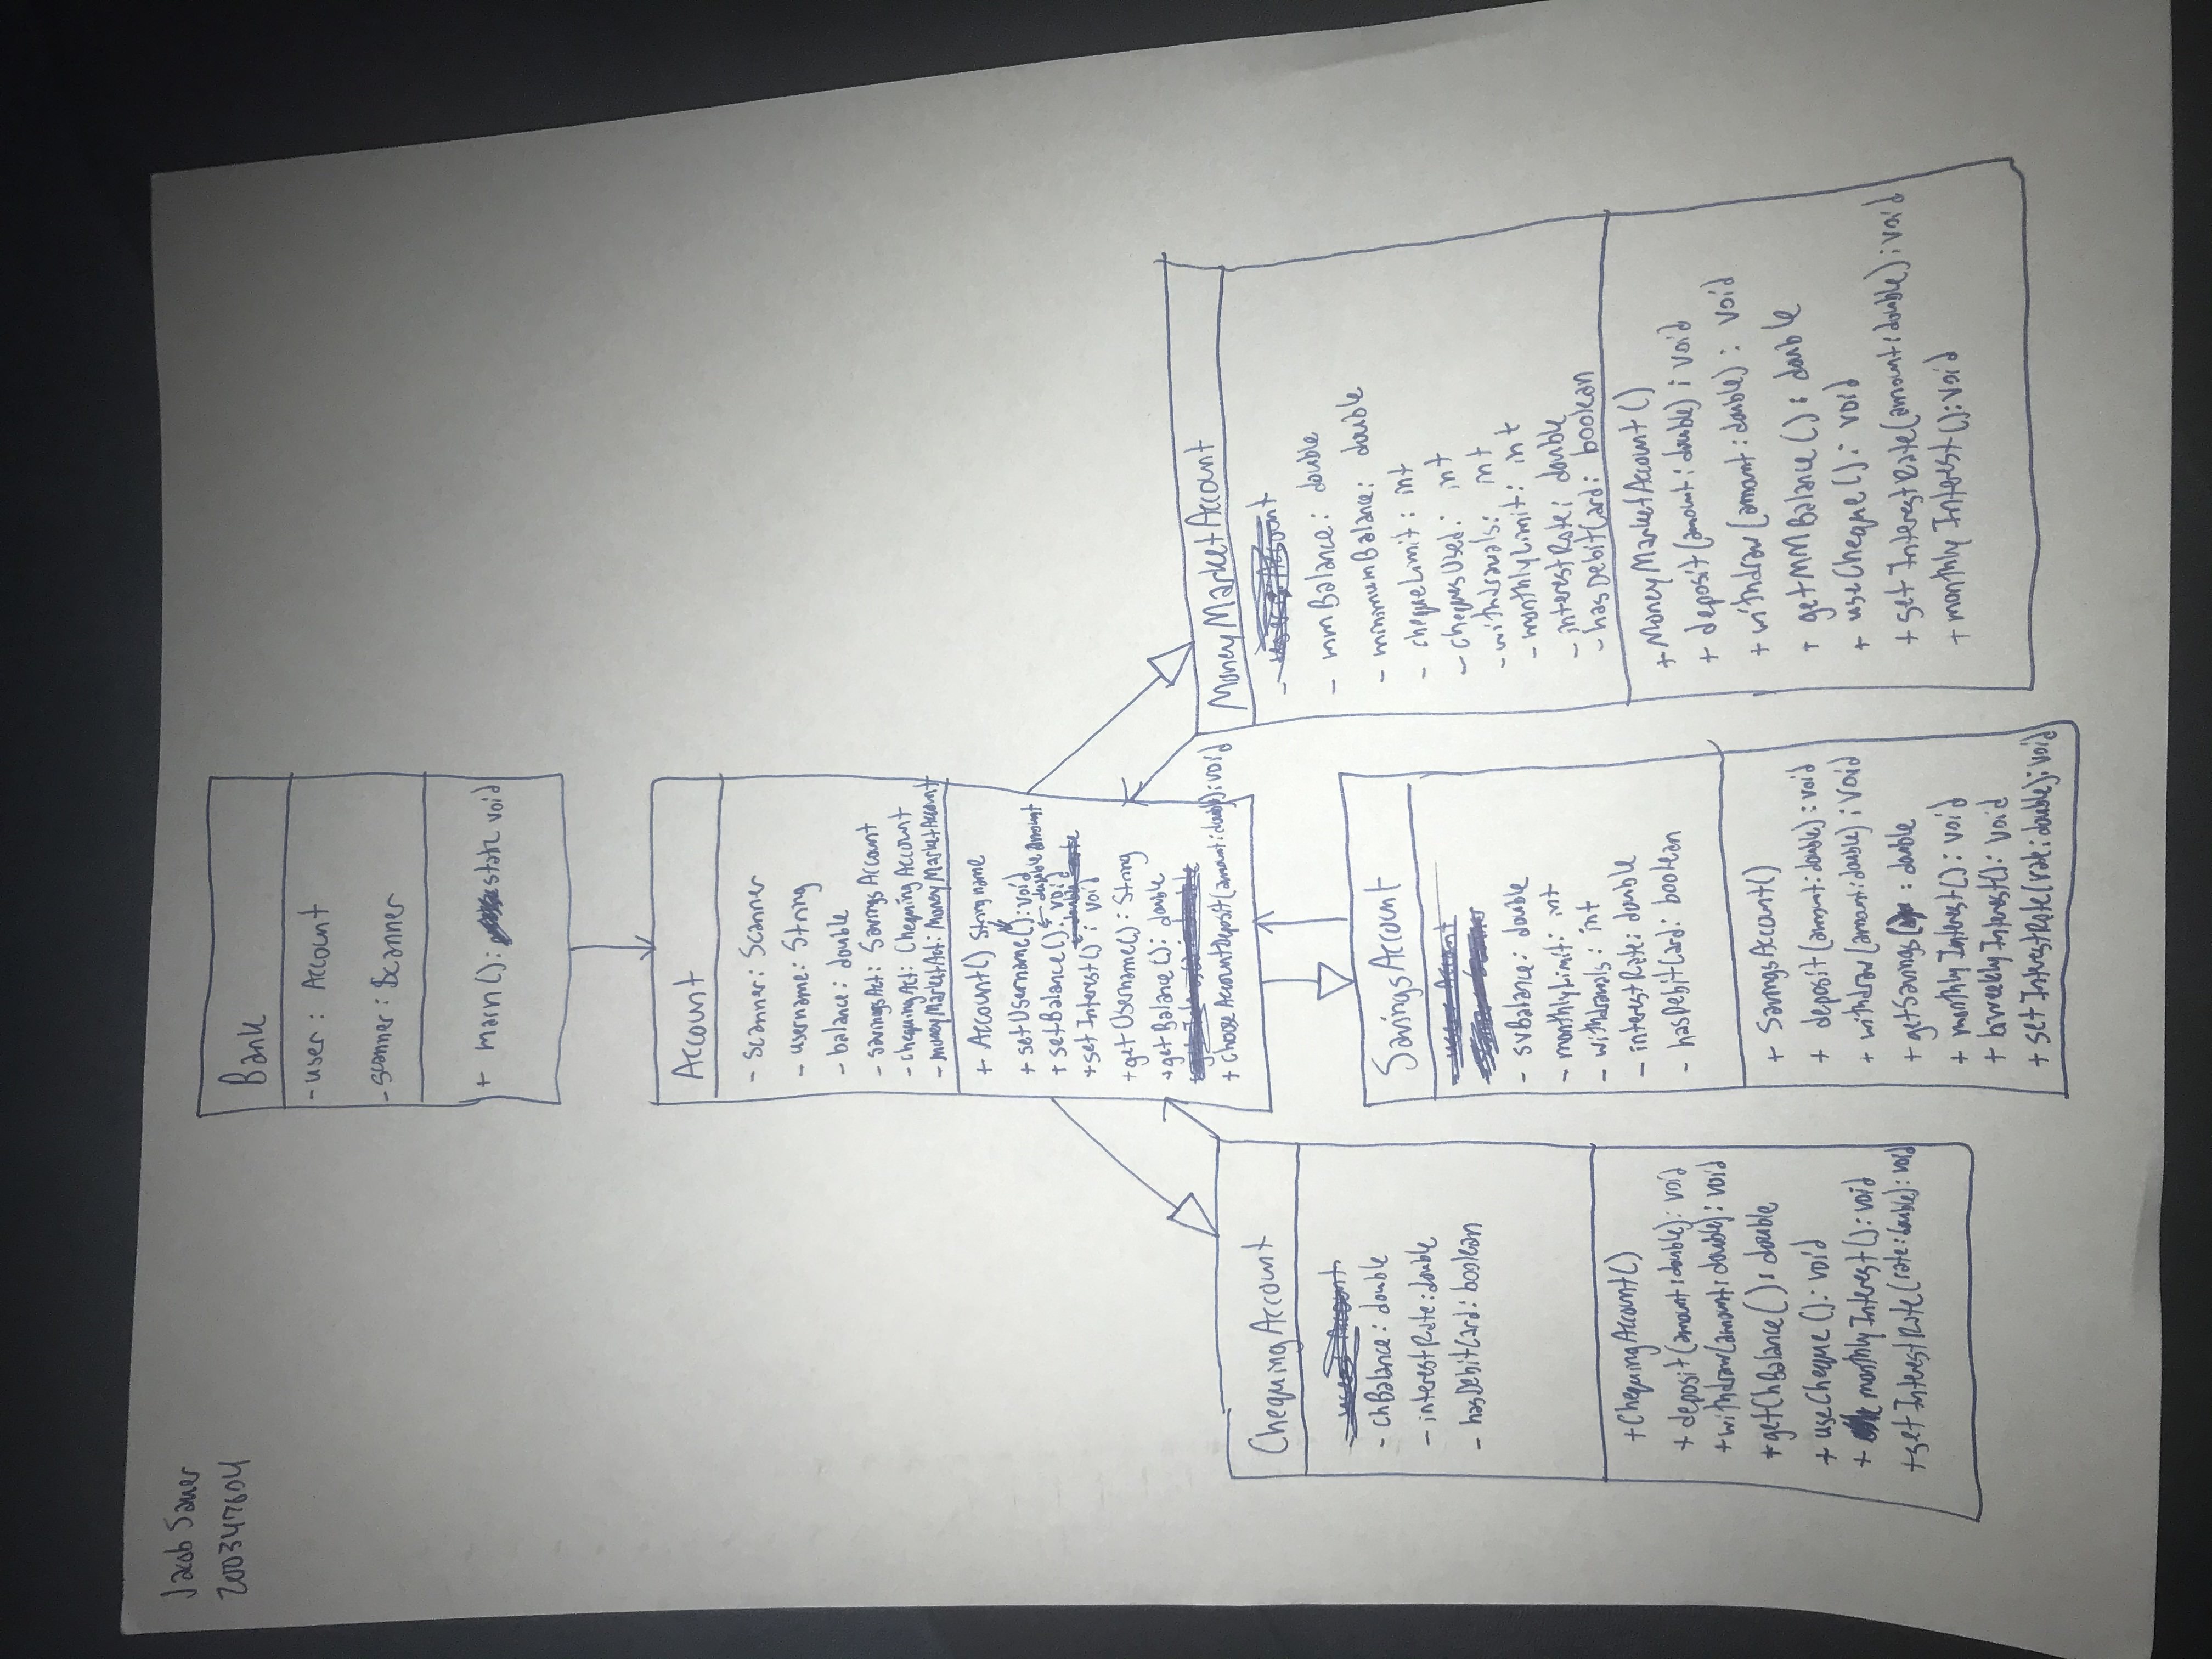 Jacob Sauer
200347604
Bank
- user : Account
- scanner : Scanner
+ main() : static void
Account
- scanner: Scanner
- username: String
- balance: double
- savingsAct: SavingsAccount
- chequingAct: ChequingAccount
- moneyMarketAct: MoneyMarketAccount
+ Account() String name
+ setUsername(): void
← double amount
+ setBalance(): void
+ setInterest() : void
+ getUsername() : String
+ getBalance(): double
+ chooseAccountDeposit(amount: double): void
ChequingAccount
- chBalance: double
- interestRate: double
- hasDebitCard: boolean
+ ChequingAccount()
+ deposit(amount: double): void
+ withdraw(amount: double): void
+ getChBalance(): double
+ useCheque(): void
+ monthlyInterest(): void
+ setInterestRate(rate: double): void
SavingsAccount
- svBalance: double
- monthlyLimit: int
- withdrawals: int
- interestRate: double
- hasDebitCard: boolean
+ SavingsAccount()
+ deposit(amount: double): void
+ withdraw(amount: double): void
+ getSavings() : double
+ monthlyInterest(): void
+ biweeklyInterest(): void
+ setInterestRate(rate: double): void
MoneyMarketAccount
- user : Account
- mmBalance: double
- minimumBalance: double
- chequeLimit: int
- chequesUsed: int
- withdrawals: int
- monthlyLimit: int
- interestRate: double
- hasDebitCard: boolean
+ MoneyMarketAccount()
+ deposit(amount: double): void
+ withdraw(amount: double): void
+ getMMBalance(): double
+ useCheque(): void
+ setInterestRate(amount: double): void
+ monthlyInterest(): void